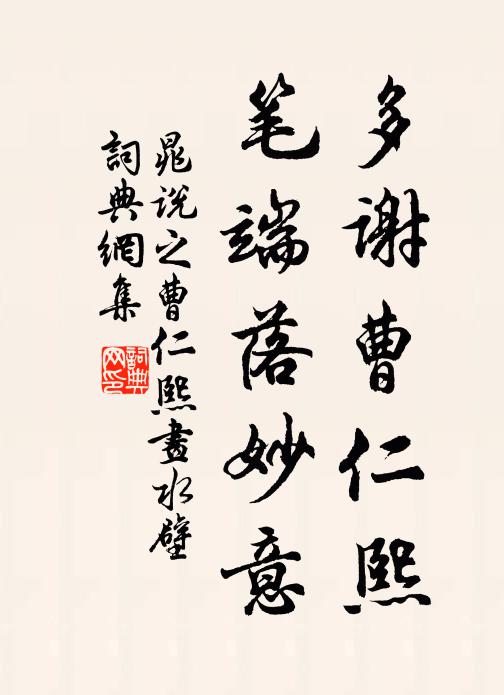 多谢曹仁熙
笔端落妙意
晁说之曹仁熙畫水壁
詞典網集
詞典网印